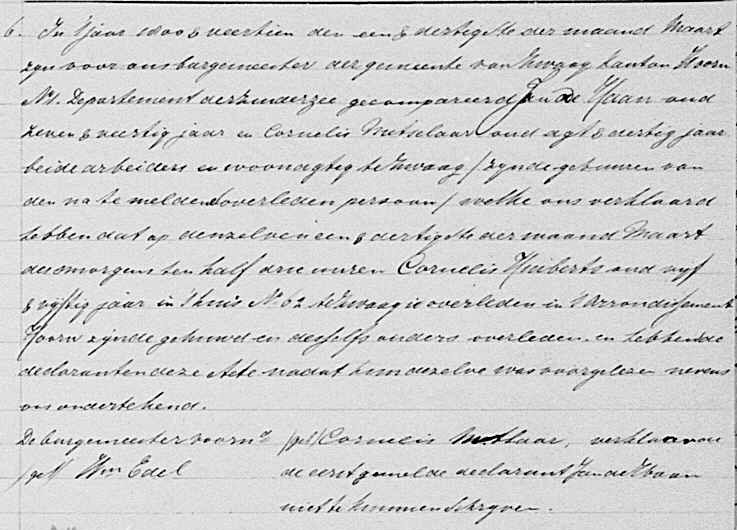 6. In 't jaar 1800 & veertien den een & dertigste der maand Maart
zyn voor ons burgemeester der gemeente van Zwaag kanton Hoorn
Arr. Departement der Zuiderzee gecompareerd Jan de Haan oud
zeven & veertig jaar en Cornelis Metselaar oud agt & dertig jaar
beide arbeiders en woonagtig te Zwaag / zynde gebuuren van
den na te melden overleden persoon / welke ons verklaard
hebben dat op denzelven een & dertigste der maand Maart
des morgens ten half drie uuren Cornelis Huiberts oud vyf
& vyftig jaar in 't huis No 62 te Zwaag is overleden in 't Arrondissement
Hoorn zynde gehuwd en desselfs ouders overleden en hebben de
declaranten deze Acte nadat hun dezelve was voorgelezen nevens
ons ondertekend.
De burgemeester voornd /get/ Cornelis Metselaar, verklaar van
/get/ Wm Edel de eerstgemelde declarant Jan de Haan
niet te kunnen schryven.